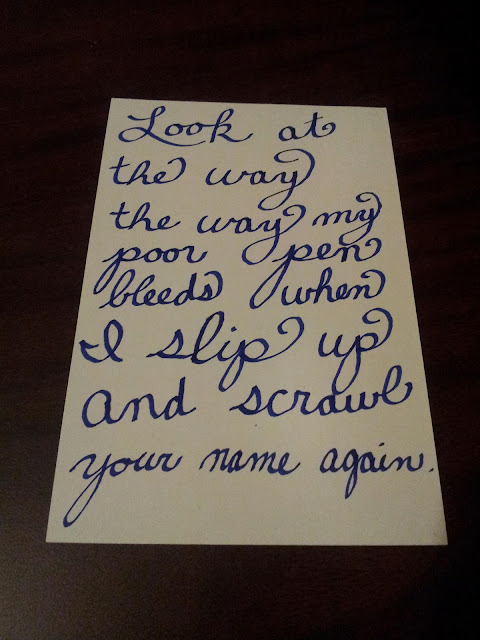 Look at
the way
the way my
poor pen
bleeds when
I slip up
and scrawl
your name again.